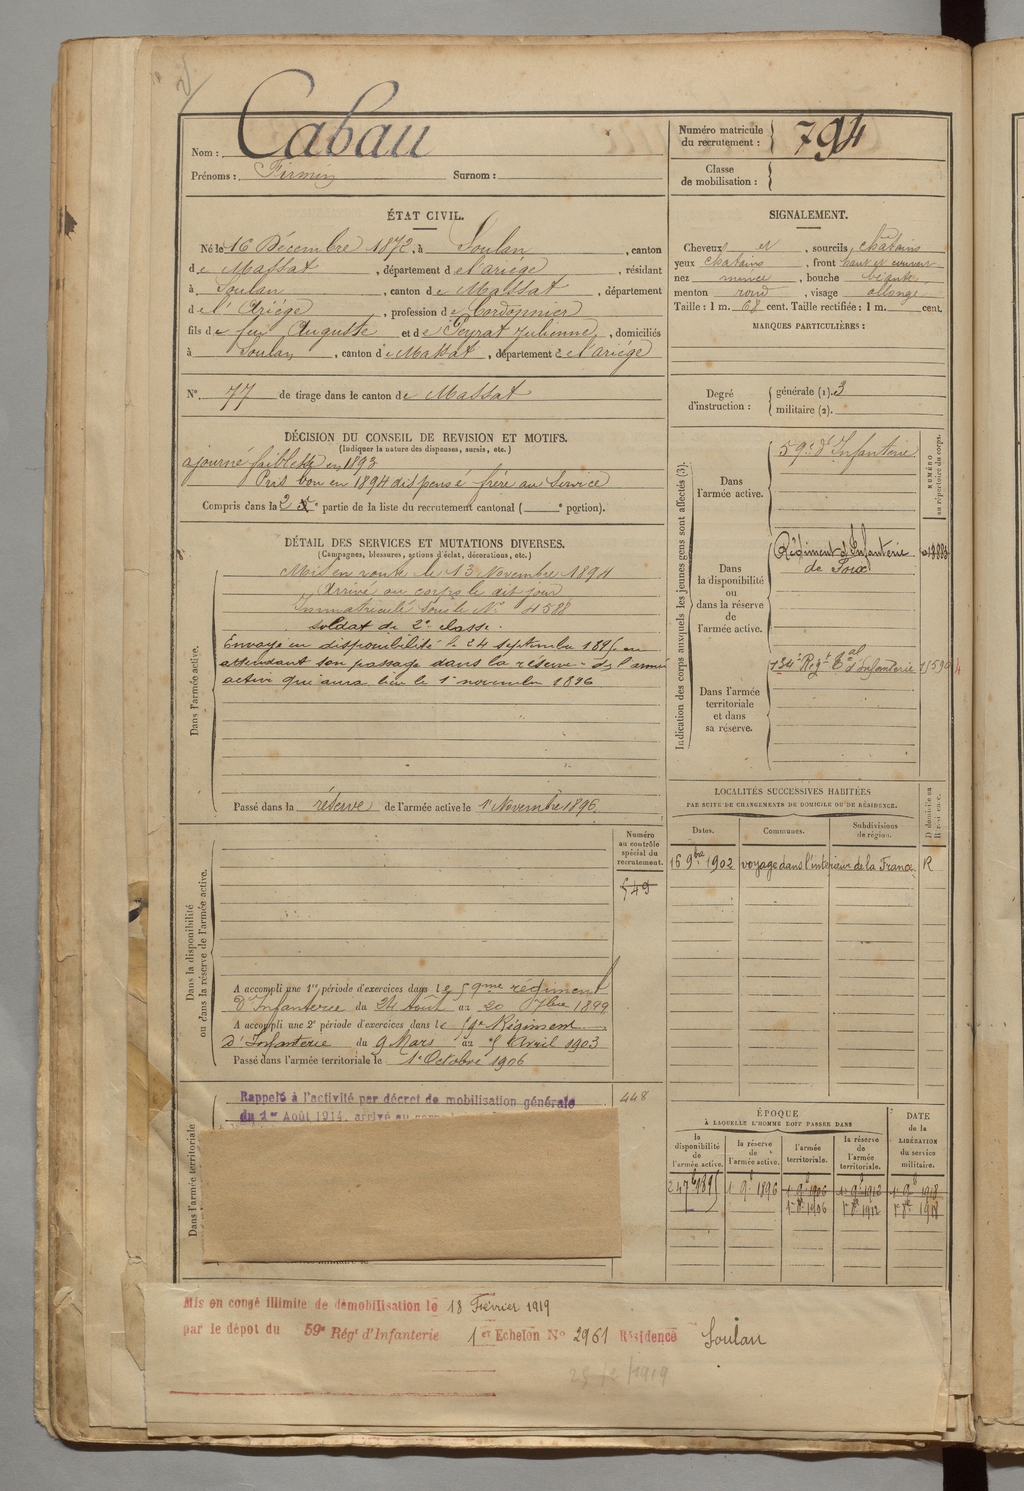 Nom : Cabau
Prénoms : Firmin Surnom :
Numéro matricule du recrutement : 794
Classe de mobilisation :
ÉTAT CIVIL.
Né le 16 Décembre 1872, à Soulan, canton
de Massat, département de l'ariège, résidant
à Soulan, canton de Massat, département
de l'Ariège, profession de Cordonnier
fils de feu Auguste et de Peyrat Julienne, domiciliés
à Soulan, canton de Massat, département de l'ariège
N° 77 de tirage dans le canton de Massat
SIGNALEMENT.
Cheveux et, sourcils chatains
yeux chatains, front haut et couvert
nez mince, bouche béante
menton rond, visage allongé
Taille : 1 m. 68 cent. Taille rectifiée : 1 m. cent.
MARQUES PARTICULIÈRES :
Degré d'instruction : générale (1). 3
militaire (2).
DÉCISION DU CONSEIL DE REVISION ET MOTIFS.
(Indiquer la nature des dispenses, sursis, etc.)
ajourné faiblesse en 1893
Pris bon en 1894 dispensé frère au Service
Compris dans la 2e partie de la liste du recrutement cantonal ( e portion).
DÉTAIL DES SERVICES ET MUTATIONS DIVERSES.
(Campagnes, blessures, actions d'éclat, décorations, etc.)
Dans l'armée active.
Mis en route le 13 Novembre 1894
Arrivé au corps le dit jour
Immatriculé sous le N° 4588
soldat de 2e classe.
Envoyé en disponibilité le 24 septembre 1895 en
attendant son passage dans la réserve de l'armée
active qui aura lieu le 1er novembre 1896
Passé dans la réserve de l'armée active le 1er Novembre 1896.
Indication des corps auxquels les jeunes gens sont affectés (3).
NUMÉRO au répertoire du corps.
Dans l'armée active.
59e d'Infanterie
Dans la disponibilité ou dans la réserve de l'armée active.
Régiment d'Infanterie
de Foix
Dans l'armée territoriale et dans sa réserve.
134e Régt Tal d'Infanterie
LOCALITÉS SUCCESSIVES HABITÉES
PAR SUITE DE CHANGEMENTS DE DOMICILE OU DE RÉSIDENCE.
Dates. Communes. Subdivisions de région. Domicile ou Résidence.
16 9bre 1902 voyage dans l'intérieur de la France R
Dans la disponibilité ou dans la réserve de l'armée active.
Numéro au contrôle spécial du recrutement.
549
A accompli une 1re période d'exercices dans le 59me régiment
d'Infanterie du 24 Août au 20 7bre 1899
A accompli une 2e période d'exercices dans le 59e Régiment
d'Infanterie du 9 Mars au 5 Avril 1903
Passé dans l'armée territoriale le 1er Octobre 1906
Dans l'armée territoriale
448
Rappelé à l'activité par décret de mobilisation générale
du 1er Août 1914, arrivé au corps
ÉPOQUE
À LAQUELLE L'HOMME DOIT PASSER DANS
la disponibilité de l'armée active. la réserve de l'armée active. l'armée territoriale. la réserve de l'armée territoriale. DATE de la LIBÉRATION du service militaire.
24 7b 1895 1er 9b 1896 1er 9b 1906 1er 9b 1912 1er 9b 1918
1er 8b 1906 1er 8b 1912 1er 8b 1918
Mis en congé illimité de démobilisation le 18 Février 1919
par le dépôt du 59e Régt d'Infanterie 1er Echelon N° 2961 Résidence Soulan